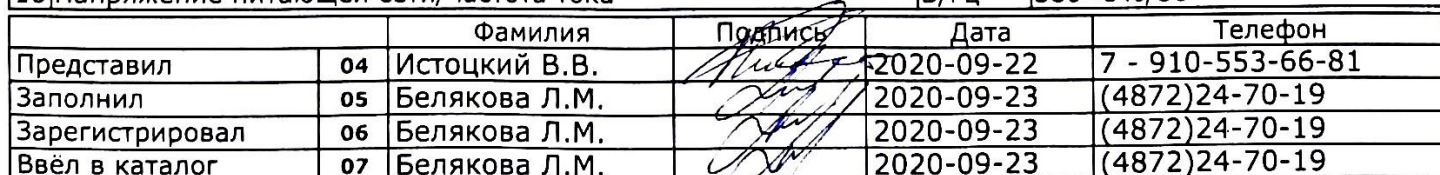 Фамилия Подпись Дата Телефон
Представил 04 Истоцкий В.В. 2020-09-22 7 - 910-553-66-81
Заполнил 05 Белякова Л.М. 2020-09-23 (4872)24-70-19
Зарегистрировал 06 Белякова Л.М. 2020-09-23 (4872)24-70-19
Ввёл в каталог 07 Белякова Л.М. 2020-09-23 (4872)24-70-19